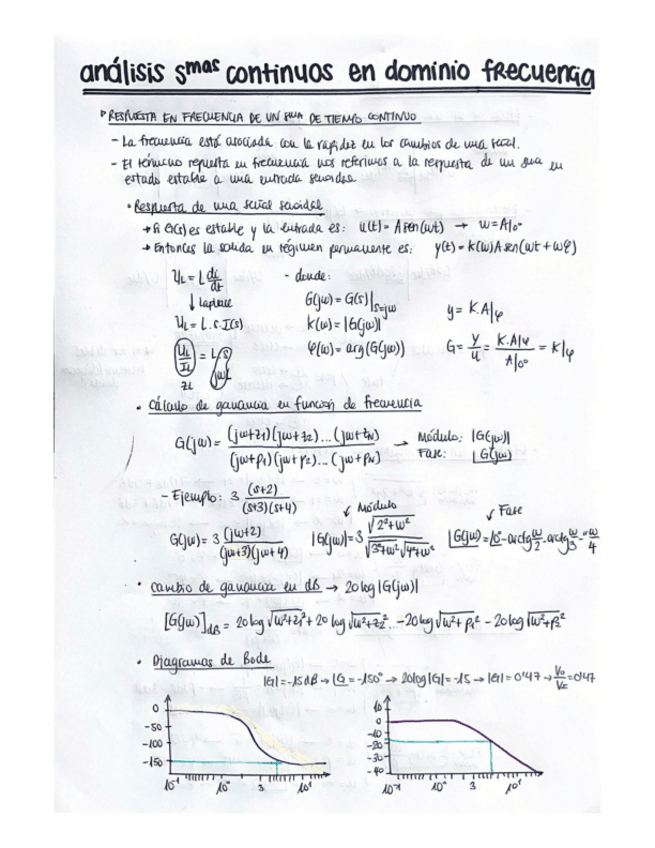 análisis smas continuos en dominio frecuencia
RESPUESTA EN FRECUENCIA DE UN sma DE TIEMPO CONTINUO
- La frecuencia está asociada con la rapidez en los cambios de una señal.
- El término repuesta en frecuencia nos referimos a la respuesta de un sma en
estado estable a una entrada senoidal.
• Respuesta de una señal senoidal
→ Si G(s) es estable y la entrada es: u(t) = A sen(ωt) → u = A|0º
→ Entonces la salida en régimen permanente es: y(t) = k(ω) A sen(ωt + ωφ)
UL = L di/dt
- donde:
↓ Laplace
G(jω) = G(s)|s=jω
y = K.A|φ
UL = L.s.I(s)
k(ω) = |G(jω)|
UL/IL = L s
jωL
φ(ω) = arg(G(jω))
G = Y/U = K.A|φ / A|0º = K|φ
ZL
• Cálculo de ganancia en función de frecuencia
G(jω) = (jω+z1)(jω+z2)...(jω+zN) / (jω+p1)(jω+p2)...(jω+pN) → Módulo: |G(jω)|
Fase: |G(jω)
- Ejemplo: 3 (s+2) / (s+3)(s+4)
↙ Módulo
↙ Fase
G(jω) = 3 (jω+2) / (jω+3)(jω+4)
|G(jω)| = 3 √2²+ω² / √3²+ω² √4²+ω²
• Cambio de ganancia en dB → 20 log |G(jω)|
[G(jω)]dB = 20 log √ω²+z1² + 20 log √ω²+z2² ... - 20 log √ω²+p1² - 20 log √ω²+p2²
• Diagramas de Bode
|G| = -15dB → |G = -150º → 20log|G| = -15 → |G| = 0'47 → = 0'47
0
-50
-100
-150
10⁻¹ 10⁰ 3 10¹
10
0
-10
-20
-30
-40
10⁻¹ 10⁰ 3 10¹